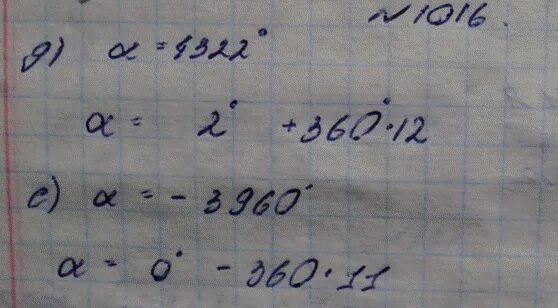 №1016.
д) α = 4322°
α = 2° + 360° · 12
е) α = - 3960°
α = 0° - 360 · 11